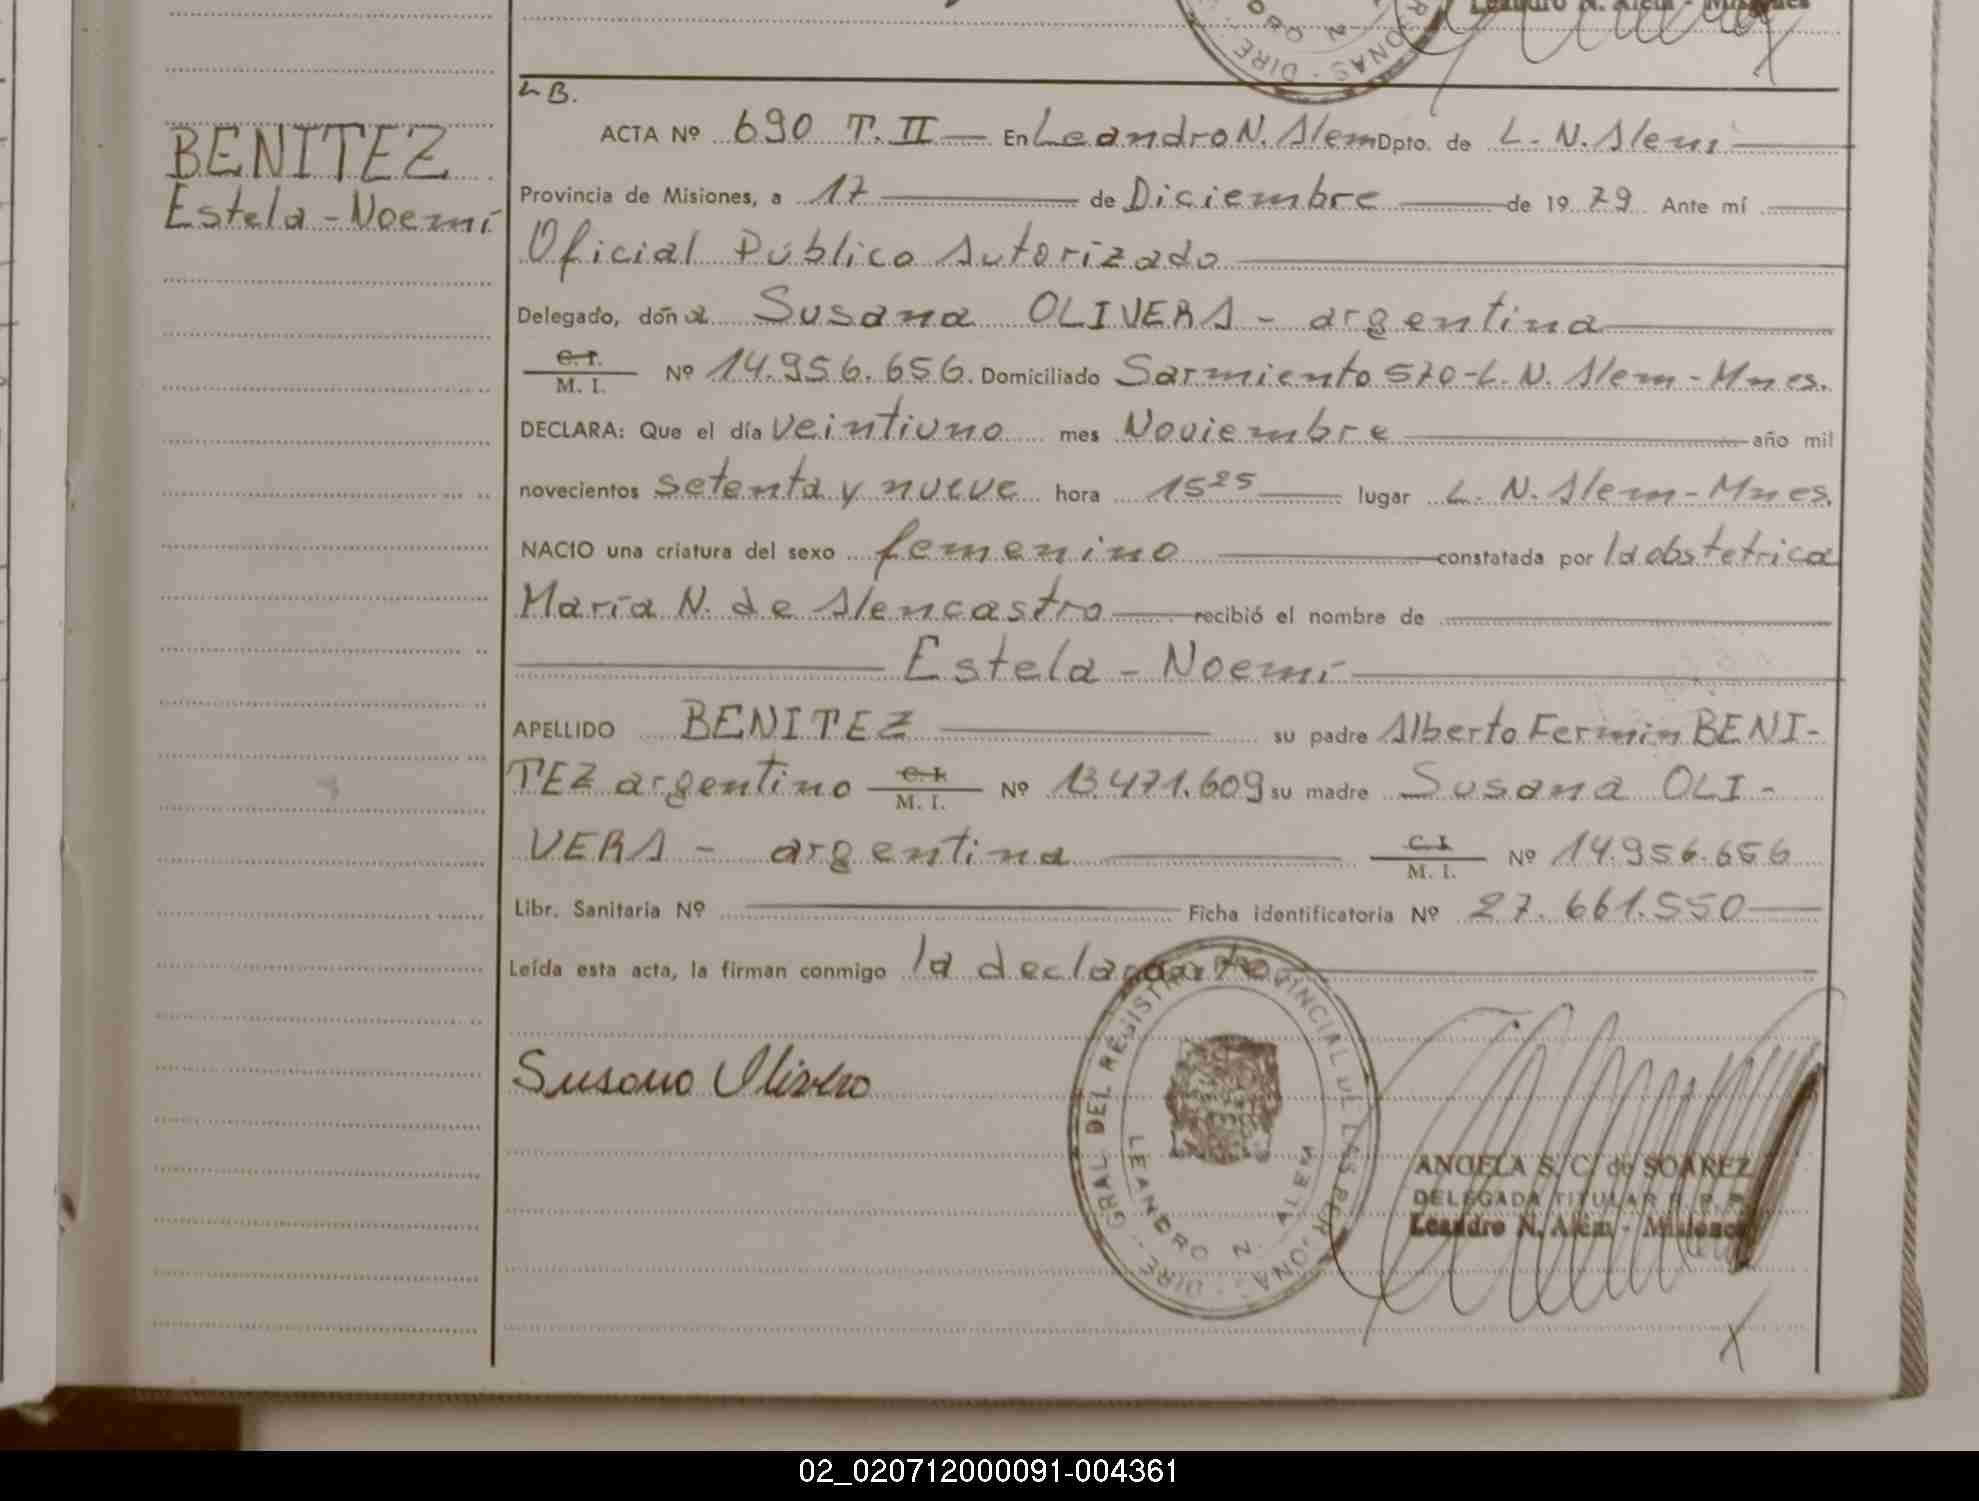 Leandro N. Alem - Misiones
L B.
BENITEZ
Estela - Noemí
ACTA Nº 690 T. II — En Leandro N. Alem Dpto. de L. N. Alem
Provincia de Misiones, a 17 de Diciembre de 1979 Ante mí
Oficial Público Autorizado
Delegado, doña Susana OLIVERA - argentina
C. I. / M. I. Nº 14.956.656. Domiciliado Sarmiento 570 - L. N. Alem - Mnes.
DECLARA: Que el día veintiuno mes Noviembre año mil
novecientos setenta y nueve hora 15 25 lugar L. N. Alem - Mnes.
NACIO una criatura del sexo femenino constatada por la obstetrica
María N. de Alencastro recibió el nombre de
Estela - Noemí
APELLIDO BENITEZ su padre Alberto Fermin BENI-
TEZ argentino C. I. / M. I. Nº 13.471.609 su madre Susana OLI-
VERA - argentina C. I. / M. I. Nº 14.956.656
Libr. Sanitaria Nº Ficha identificatoria Nº 27.661.550
Leída esta acta, la firman conmigo la declarante
Susana Olivera
DIRE. GRAL DEL REGISTRO PROVINCIAL DE LAS PERSONAS
LEANDRO N. ALEM
ANGELA S. C. de SOAREZ
DELEGADA TITULAR R. P. P.
Leandro N. Alem - Misiones
02_020712000091-004361